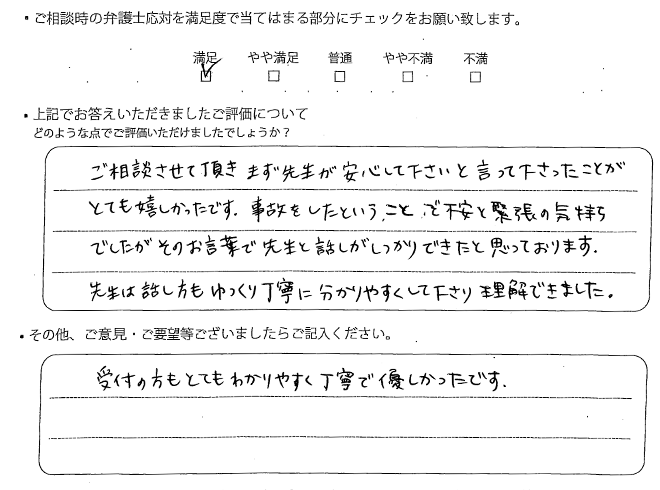 ・ご相談時の弁護士応対を満足度で当てはまる部分にチェックをお願い致します。
満足 やや満足 普通 やや不満 不満
☑ □ □ □ □
・上記でお答えいただきましたご評価について
どのような点でご評価いただけましたでしょうか？
ご相談させて頂き まず先生が 安心して下さいと 言って下さったことが
とても嬉しかったです. 事故をしたということ で不安と緊張の気持ち
でしたが そのお言葉で 先生と話しがしっかりできたと思っております.
先生は話し方も ゆっくり丁寧に 分かりやすくして下さり 理解できました。
・その他、ご意見・ご要望等ございましたらご記入ください。
受付の方もとてもわかりやすく丁寧で優しかったです.